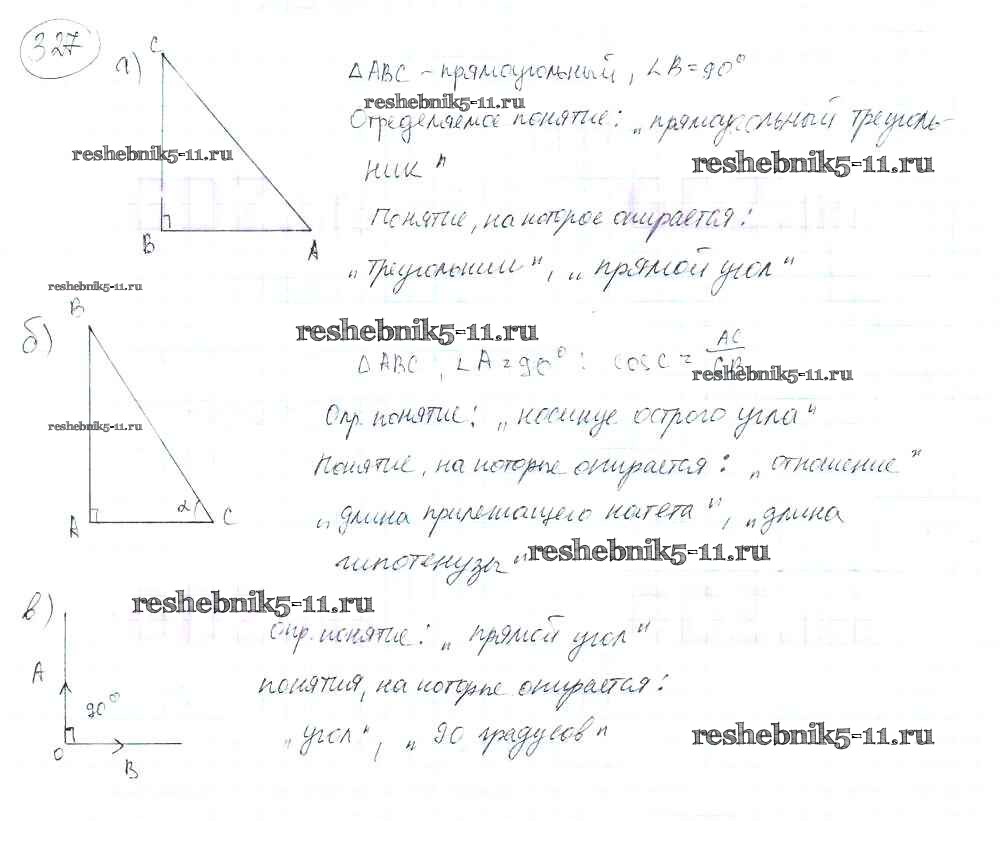 327
а)
C
B
A
△ABC - прямоугольный, ∠B=90°
reshebnik5-11.ru
Определяемое понятие: „прямоугольный треуголь-
reshebnik5-11.ru
reshebnik5-11.ru
ник"
Понятие, на которое опирается:
„треугольник", „прямой угол"
reshebnik5-11.ru
б)
B
A
α
C
reshebnik5-11.ru
△ABC, ∠A=90°: cos C = AC/CB
reshebnik5-11.ru
Опр. понятие: „косинус острого угла"
reshebnik5-11.ru
Понятие, на которые опирается: „отношение"
„длина прилежащего катета", „длина
гипотенузы"
reshebnik5-11.ru
в)
reshebnik5-11.ru
A
90°
O
B
Опр. понятие: „прямой угол"
понятия, на которые опирается:
„угол", „90 градусов"
reshebnik5-11.ru